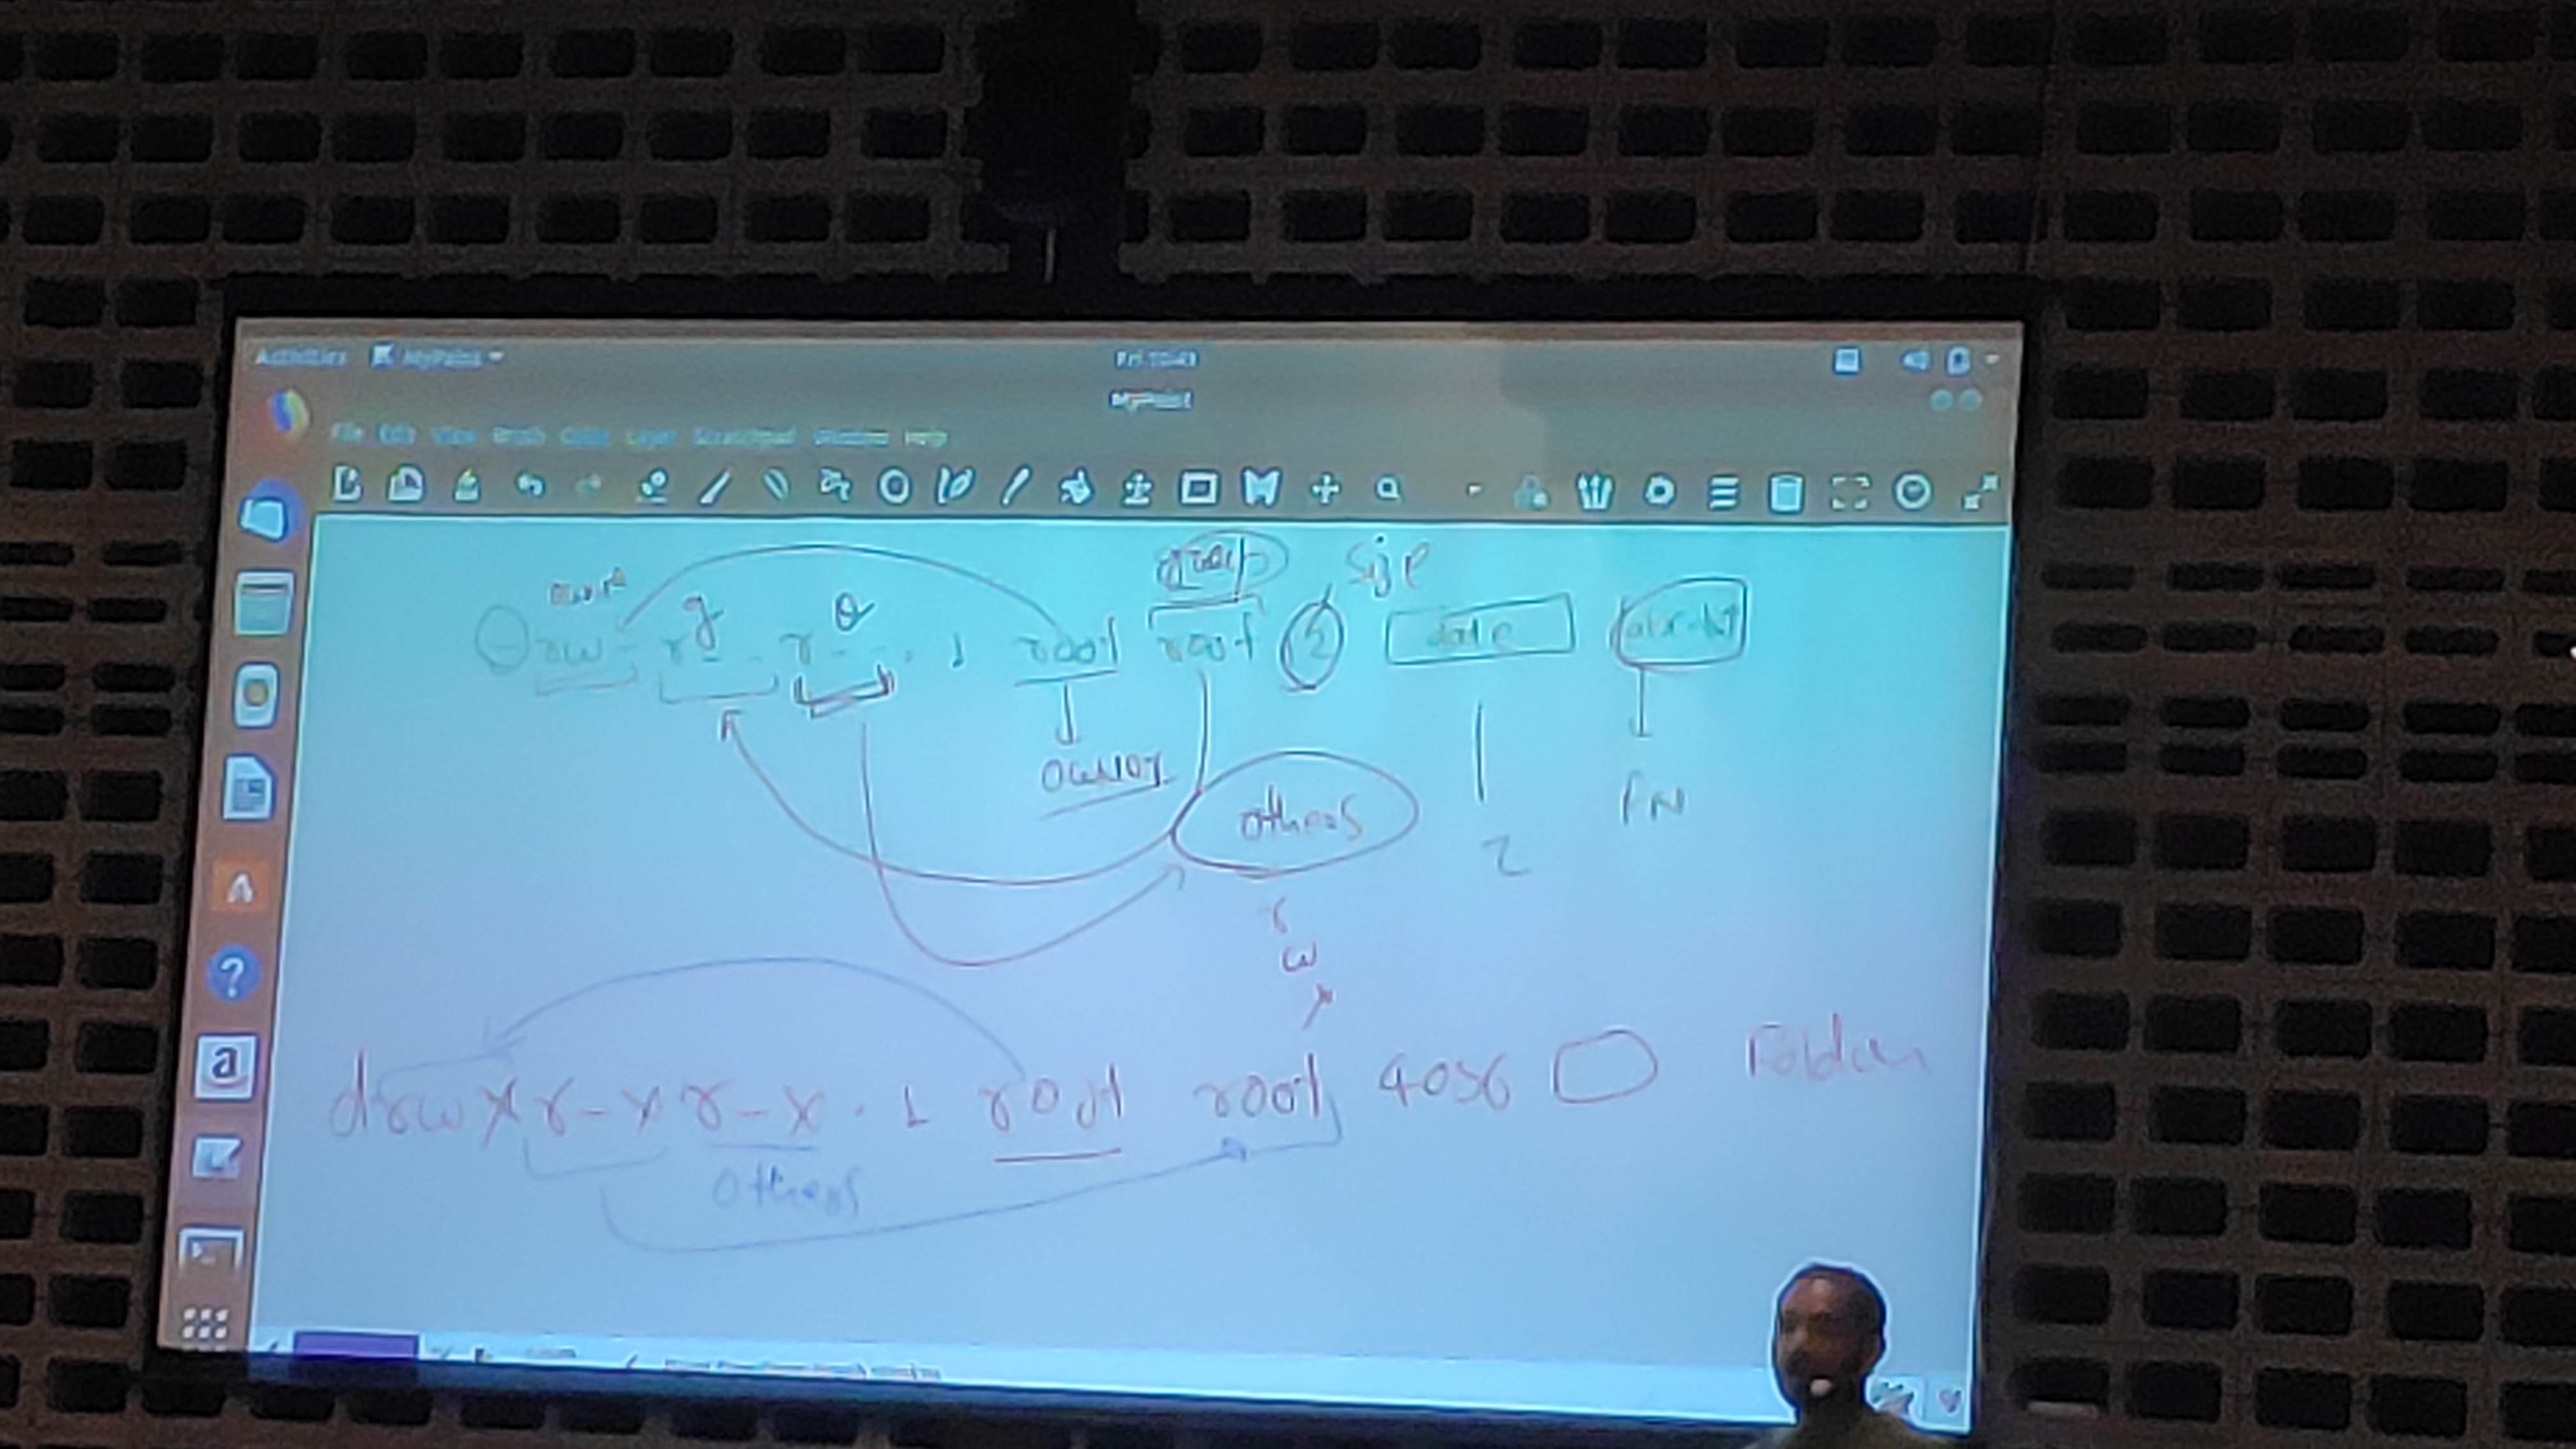 Activities MyPaint
Fri 10:43
MyPaint
File Edit View Brush Color Layer Scratchpad Window Help
group size
owner g o
- rw- r-- r--. 1 root root 2 date
owner
others
FN
r
w
x
drwxr-xr-x. 1 root root 4096 Folder
others
?
a